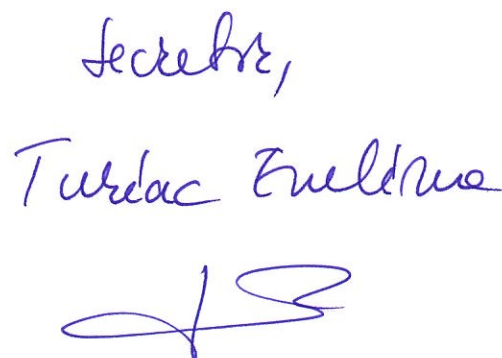 Secretar,
Turiac Emilina